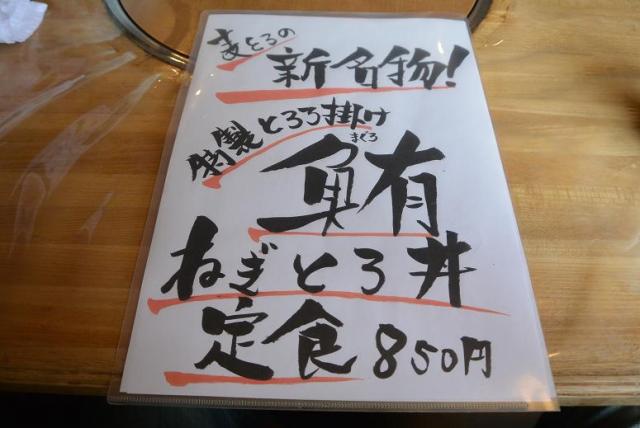 麦とろの
新名物!
特製とろろ掛け
まぐろ
鮪
ねぎとろ丼
定食 850円